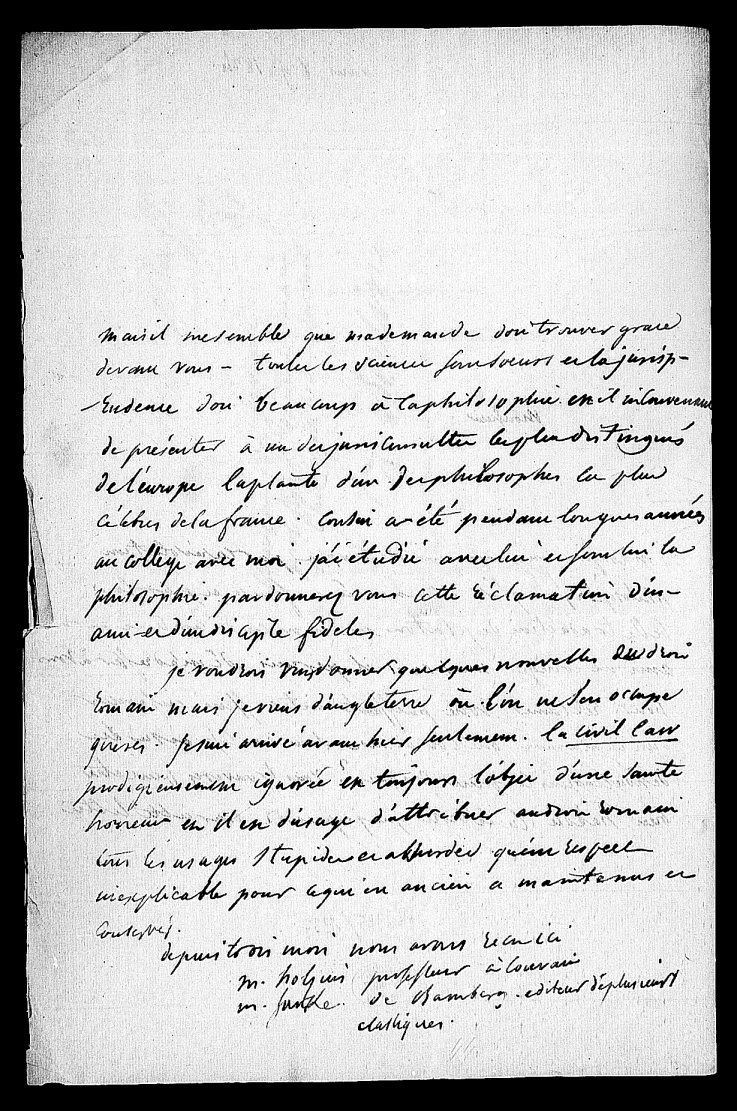 mais il me semble que ma demande doit trouver grace
devant vous – toutes les sciences sont soeurs et la jurisp-
rudence doit beaucoup à la philosophie. est il inconvenant
de présenter à un des jurisconsultes les plus distingués
de l'europe la plante d'un des philosophes les plus
célèbres de la france. Cousin a été pendant longues années
au college avec moi. j'ai étudié avec lui et sous lui la
philosophie. pardonnerez vous cette réclamation d'un
ami et d'un disciple fidèles
je voudrois vous donner quelques nouvelles du droit
romain mais je viens d'angleterre où l'on ne s'en occupe
gueres. je suis arrivé avant hier seulement. la civil law
prodigieusement ignorée est toujours l'objet d'une sainte
horreur et il est d'usage d'attribuer au droit romain
tous les usages stupides et absurdes qu'un respect
inexplicable pour ce qui est ancien a maintenus et
conservés.
depuis trois mois nous avons recu ici
m. holzius professeur à louvain
m. de Bamberg. editeur de plusieurs
classiques.